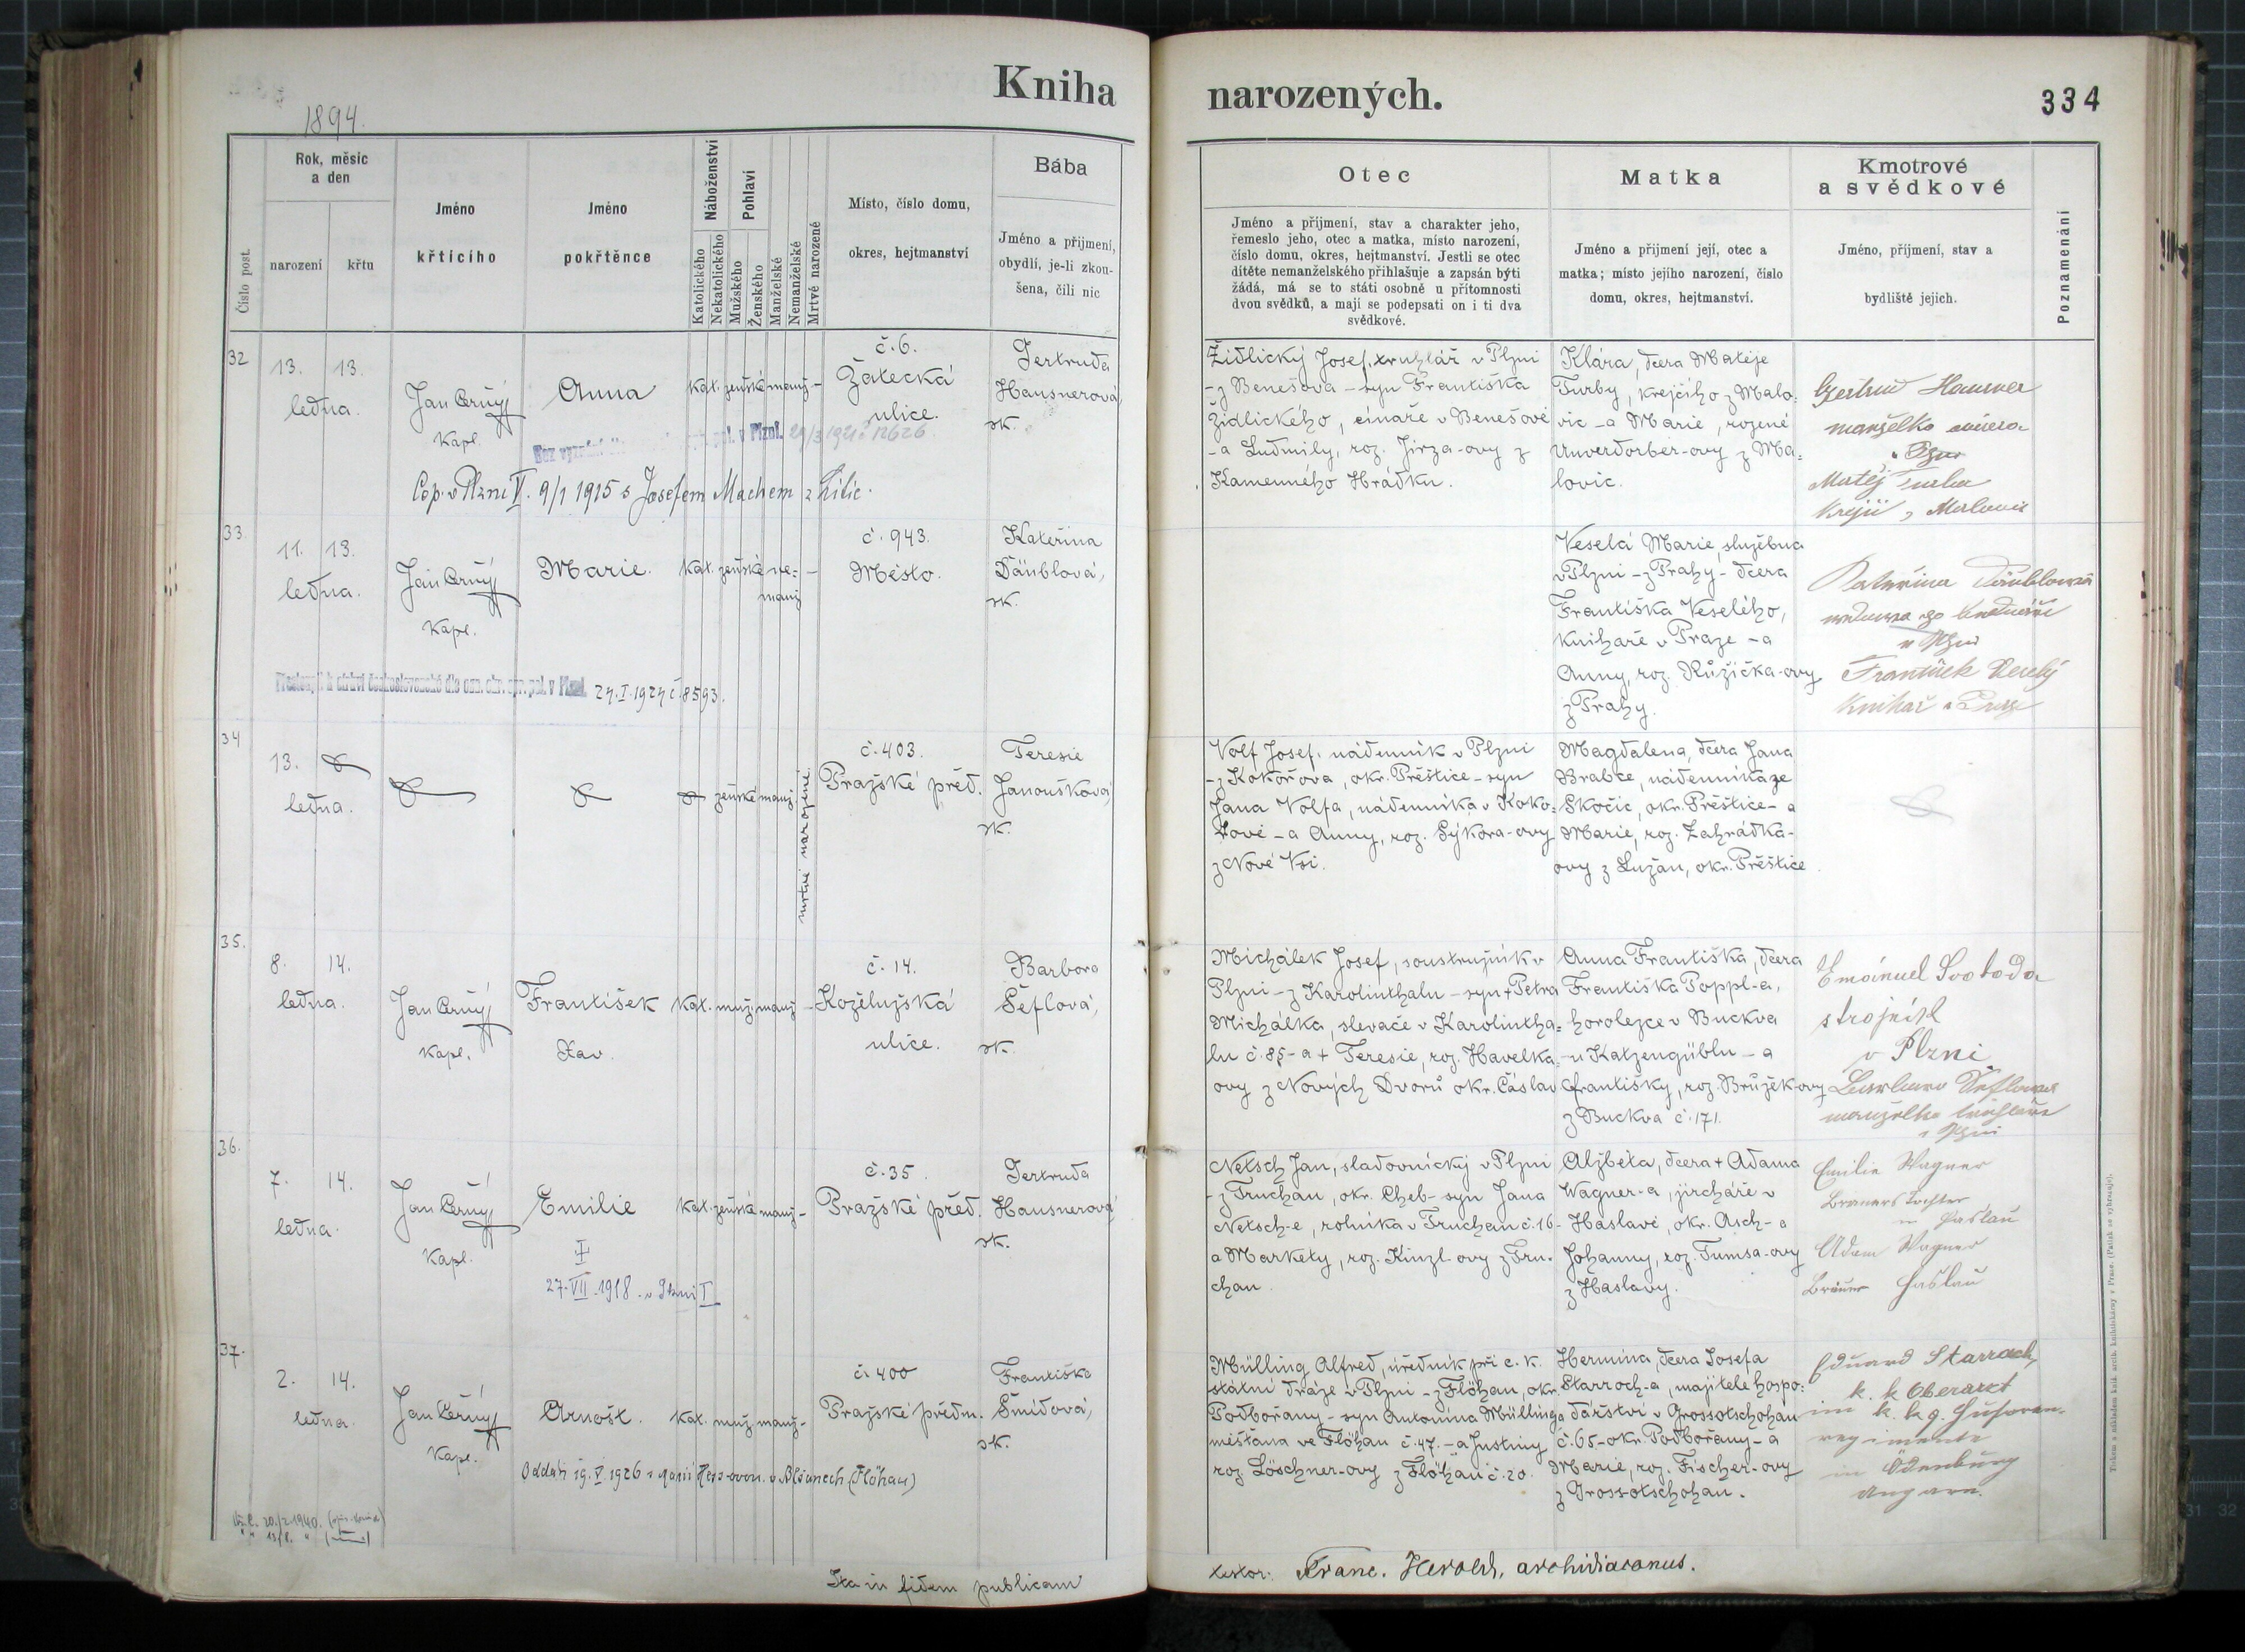 Kniha
narozených.
334
1894.
Číslo post.
Rok, měsíc
a den
narození
křtu
Jméno
křticího
Jméno
pokřtěnce
Náboženství
Katolického
Nekatolického
Pohlaví
Mužského
Ženského
Manželské
Nemanželské
Mrtvě narozené
Místo, číslo domu,
okres, hejtmanství
Bába
Jméno a příjmení,
obydlí, je-li zkou-
šena, čili nic
Otec
Jméno a příjmení, stav a charakter jeho,
řemeslo jeho, otec a matka, místo narození,
číslo domu, okres, hejtmanství. Jestli se otec
dítěte nemanželského přihlašuje a zapsán býti
žádá, má se to státi osobně u přítomnosti
dvou svědků, a mají se podepsati on i ti dva
svědkové.
Matka
Jméno a příjmení její, otec a
matka; místo jejího narození, číslo
domu, okres, hejtmanství.
Kmotrové
a svědkové
Jméno, příjmení, stav a
bydliště jejich.
Poznamenání
32
13. 13.
ledna.
Jan Černý
kapl.
Anna
kat. ženské manž. -
č. 6.
Žatecká
ulice.
Gertruda
Hausnerová
zk.
v Plzni. 29/3 1921 č 12626.
Cop. v Plzni V. 9/1 1915 s Josefem Machem z Litic.
Židlický Josef, truhlář v Plzni
- z Benešova - syn Františka
Židlického, cínaře v Benešově
- a Ludmily, roz. Jirza-ovy z
Kamenného Hrádku.
Klára, dcera Matěje
Turby, krejčího z Malo=
vic - a Marie, rozené
Unverdorber-ovy z Ma=
lovic.
Gertrud Hausner
manželka
Matěj Turba
krejčí z Malovic
33.
11. 13.
ledna.
Jan Černý
kapl.
Marie.
kat. ženské ne=
manž
-
č. 943.
Město.
Kateřina
Däublová,
zk.
Přestoupil k církvi československé dle ozn. okr. spr. pol. v Plzni. 24.I.1924 č 8593.
Veselá Marie, služebná
v Plzni - z Prahy - dcera
Františka Veselého,
knihaře v Praze - a
Anny, roz. Růžička-ovy
z Prahy.
Kateřina Däublowá
v Plzni
František Veselý
knihař v Praze
34
13.
ledna.
ženské manž.
mrtvě narozené
č. 403.
Pražské před.
Teresie
Janoušková,
zk.
Volf Josef, nádenník v Plzni
- z Kokořova, okr. Přeštice - syn
Jana Volfa, nádenníka v Koko=
řově - a Anny, roz. Sýkora-ovy
z Nové Vsi.
Magdalena, dcera Jana
Brabce, nádenníka ze
Skočic, okr. Přeštice - a
Marie, roz. Zahrádka-
ovy z Lužan, okr. Přeštice
35.
8. 14.
ledna.
Jan Černý
kapl.
František
Xav.
kat. muž. manž -
č. 14.
Koželužská
ulice.
Barbora
Šeflová,
zk.
Michálek Josef, soustružník v
Plzni - z Karolinthalu - syn + Petra
Michálka, slevače v Karolintha=
lu č. 85 - a + Teresie, roz. Havelka-
ovy z Nových Dvorů okr. Čáslav
Anna Františka, dcera
Františka Poppl-a,
horolezce v Buckva
- u Katzengüblu - a
Františky, roz. Brůžek-ovy
z Buckva č. 171.
Emanuel Svoboda
strojník
v Plzni
Barbara Šeflowa
manželka truhláře
v Plzni
36.
7. 14.
ledna.
Jan Černý
kapl.
Emilie
kat. ženské manž -
č. 35.
Pražské před.
Gertruda
Hausnerová
zk.
27. VII. 1918. v Plzni I
Netsch Jan, sladovnický v Plzni
- z Truchan, okr. Cheb - syn Jana
Netsch-e, rolníka v Truchan č. 16 -
a Markety, roz. Kinzl-ovy z Tru-
chan.
Alžběta, dcera + Adama
Wagner-a, jircháře v
Haslavě, okr. Asch - a
Johanny, roz. Tumsa-ovy
z Haslavy.
Emilie Wagner
Brauers Tochter
in Haslau
Adam Wagner
Bräuer Haslau
37.
2. 14.
ledna.
Jan Černý
kapl.
Arnošt.
kat. muž. manž -
č. 400
Pražské předm.
Františka
Šmídová,
zk.
Oddán 19. V. 1926 s Marií v Blšanech (Flöhau)
Mülling Alfred, úředník při c. k.
státní dráze v Plzni - z Flöhau, okr.
Podbořany - syn Antonína Mülling-a
měšťana ve Flöhau č. 47. - a Justiny
roz. Löschner-ovy z Flöhau č. 20.
Hermina, dcera Josefa
Starroch-a, majitele hospo=
dářství v Grossotschohau
č. 65 - okr. Podbořany - a
Marie, roz. Fischer-ovy
z Grossotschohau.
Eduard Starroch,
k. k. Oberarzt
im k. k. 9. Husaren-
regimente
in Ödenburg
Ungarn.
Ita in fidem publicam
testor: Franc. Herold, archidiaconus.